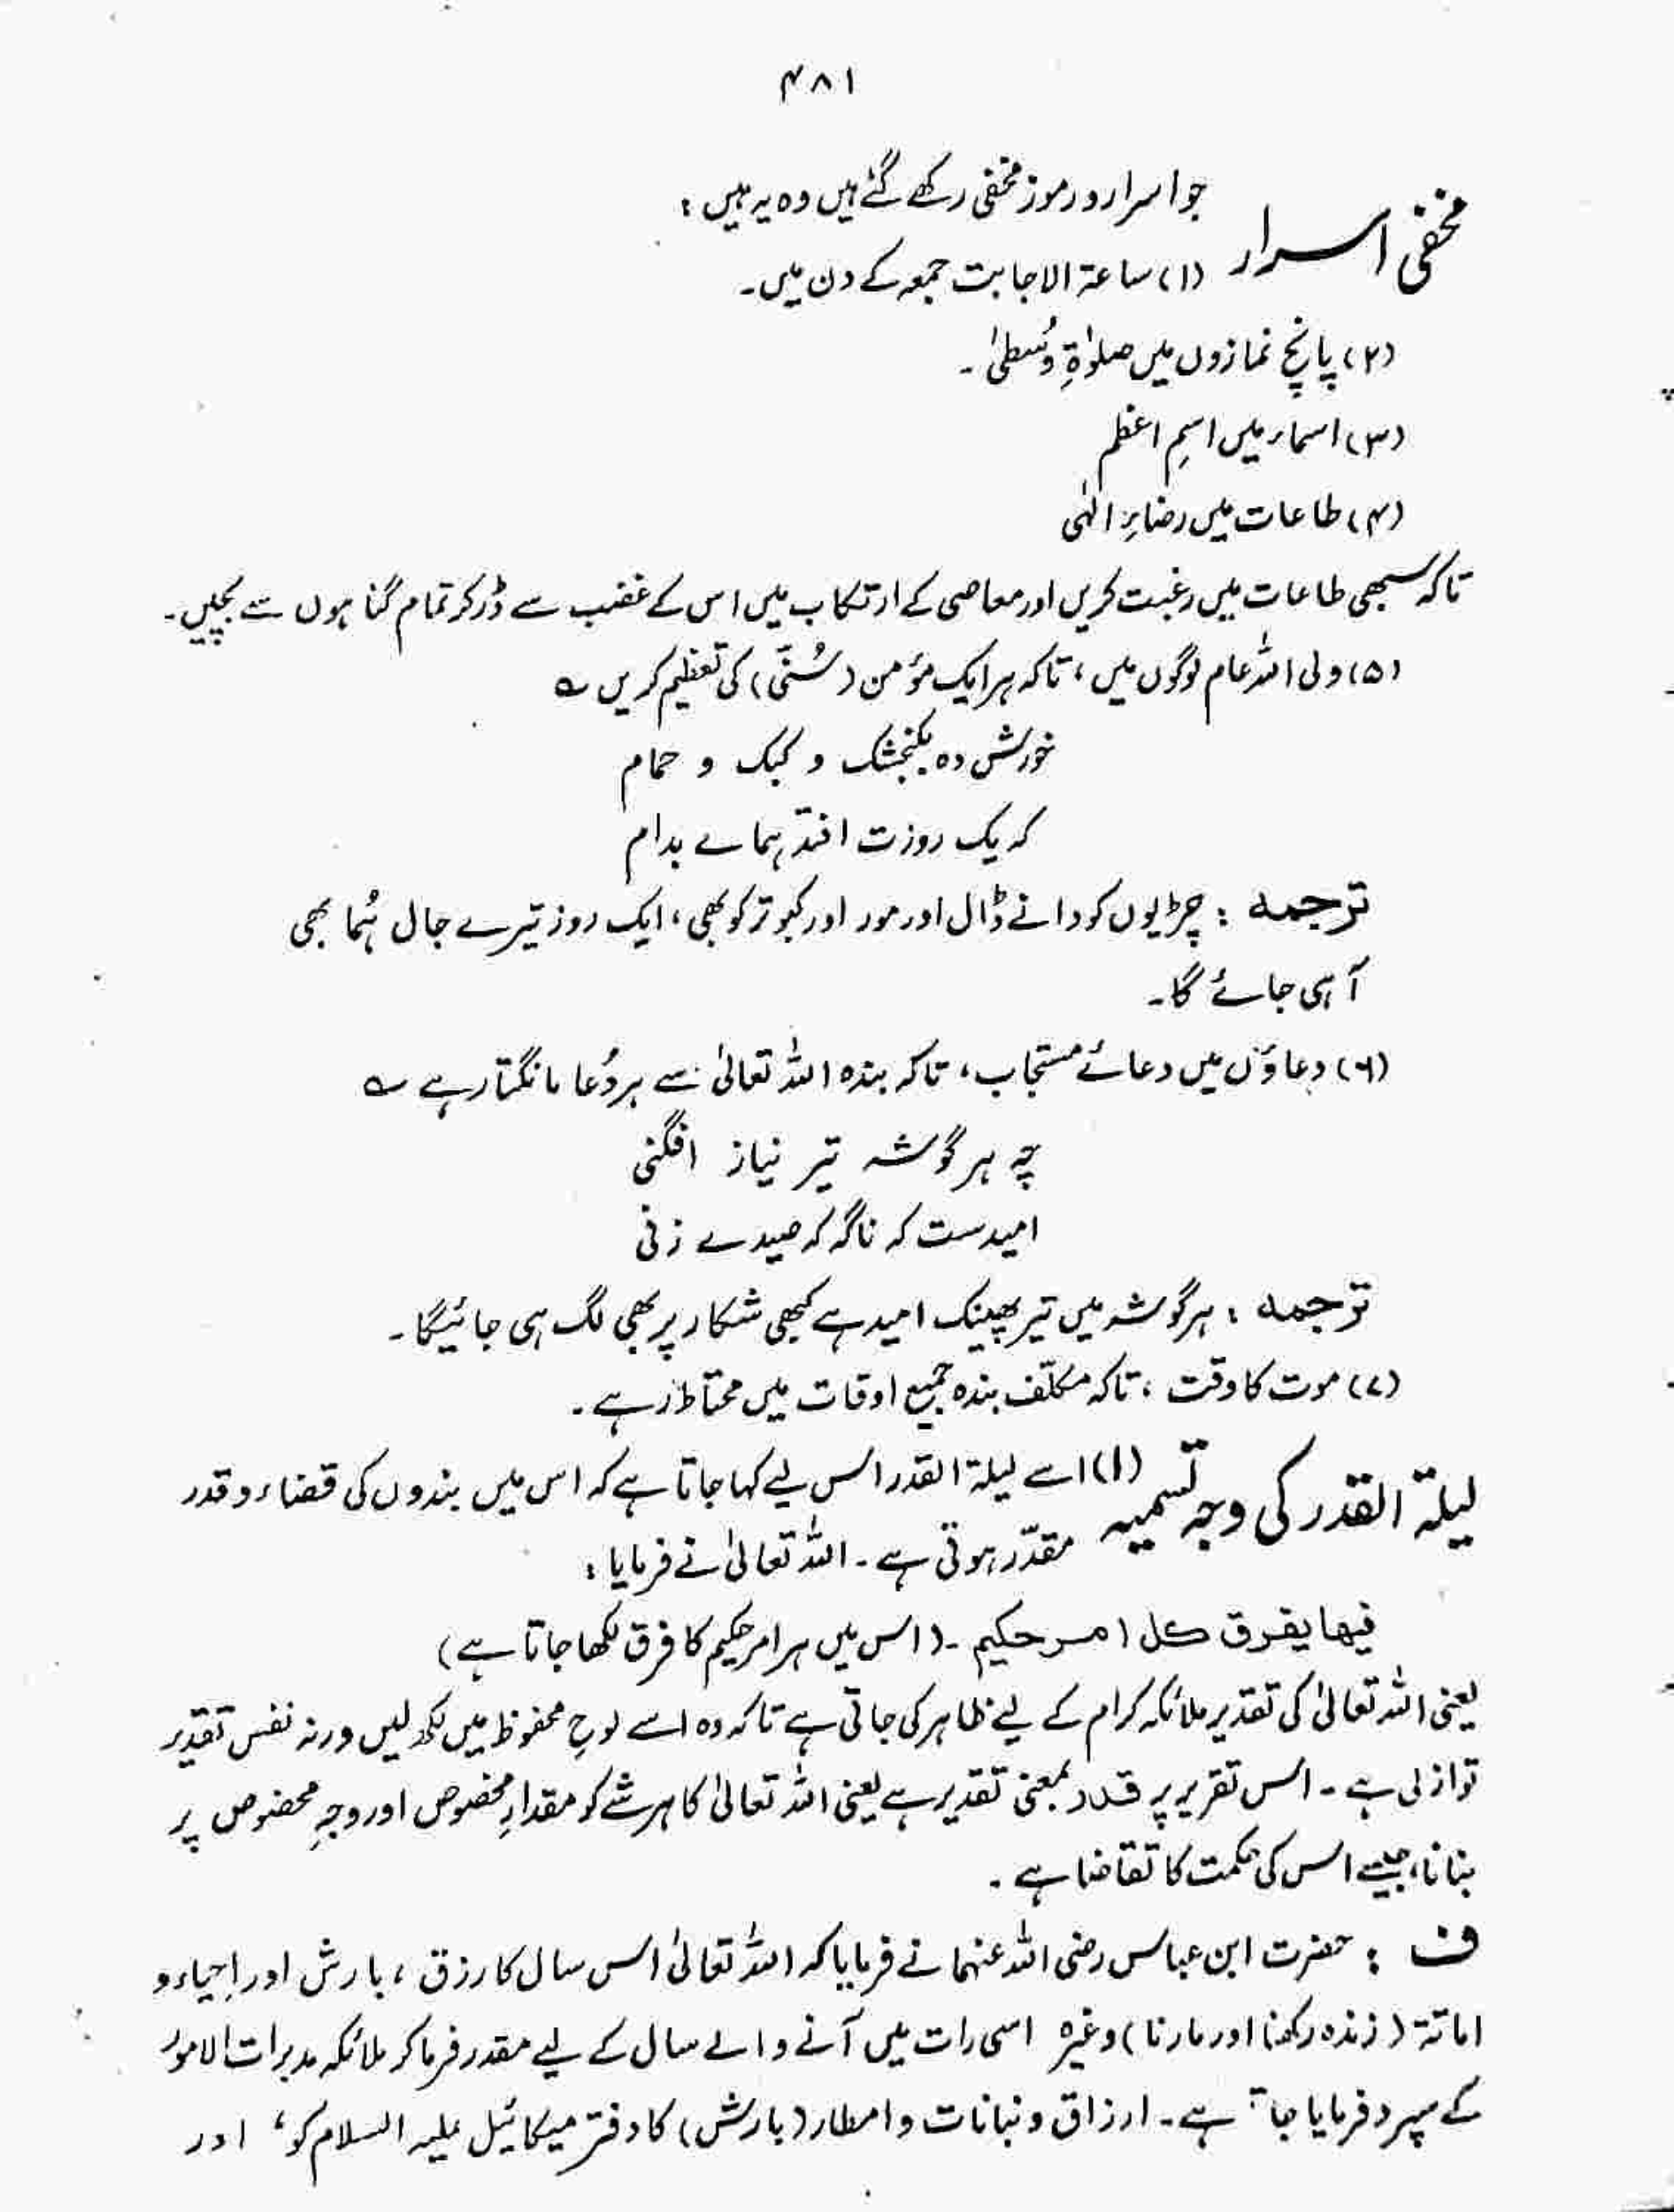 ۴۸۱
مخفی اسرار
جو اسرار و رموز مخفی رکھے گئے ہیں وہ یہ ہیں :
(۱) ساعۃ الاجابت جمعہ کے دن میں۔
(۲) پانچ نمازوں میں صلوٰۃِ وُسطیٰ ۔
(۳) اسماء میں اسمِ اعظم
(۴) طاعات میں رضاءِ الٰہی
تاکہ سبھی طاعات میں رغبت کریں اور معاصی کے ارتکاب میں اس کے غضب سے ڈر کر تمام گناہوں سے بچیں۔
(۵) ولی اللہ عام لوگوں میں ، تاکہ ہر ایک مؤمن (سُنّی) کی تعظیم کریں ؎
خورش دہ بکنجشک و کبک و حمام
کہ یک روزت افتد ہمائے بدام
ترجمہ : چڑیوں کو دانے ڈال اور مور اور کبوتر کو بھی ، ایک روز تیرے جال ہُما بھی
آ ہی جائے گا۔
(۶) دعاؤں میں دعائے مستجاب ، تاکہ بندہ اللہ تعالیٰ سے ہر دُعا مانگتا رہے ؎
چہ ہر گوشہ تیر نیاز افگنی
امیدست کہ ناگہ کہ صیدے زنی
ترجمہ : ہر گوشہ میں تیر پھینک امید ہے کبھی شکار پر بھی لگ ہی جائیگا۔
(۷) موت کا وقت ، تاکہ مکلّف بندہ جمیع اوقات میں محتاط رہے ۔
لیلۃ القدر کی وجہِ تسمیہ
(۱) اسے لیلۃ القدر اس لیے کہا جاتا ہے کہ اس میں بندوں کی قضاء و قدر
مقدّر ہوتی ہے ۔ اللہ تعالیٰ نے فرمایا :
فیھا یفرق کل امر حکیم ۔ (اس میں ہر امر حکیم کا فرق لکھا جاتا ہے)
یعنی اللہ تعالیٰ کی تقدیر ملائکہ کرام کے لیے ظاہر کی جاتی ہے تاکہ وہ اسے لوحِ محفوظ میں لکھ لیں ورنہ نفس تقدیر
تو ازلی ہے ۔ اس تقریر پر قدر بمعنی تقدیر ہے یعنی اللہ تعالیٰ کا ہر شے کو مقدارِ مخصوص اور وجہِ مخصوص پر
بنانا ، جیسے اس کی حکمت کا تقاضا ہے ۔
ف : حضرت ابن عباس رضی اللہ عنہما نے فرمایا کہ اللہ تعالیٰ اس سال کا رزق ، بارش اور اِحیاء و
اماتۃ (زندہ رکھنا اور مارنا) وغیرہ اسی رات میں آنے والے سال کے لیے مقدر فرما کر ملائکہ مدبرات الامور
کے سپرد فرمایا جاتا ہے ۔ ارزاق و نباتات و امطار (بارش) کا دفتر میکائیل علیہ السلام کو ، اور